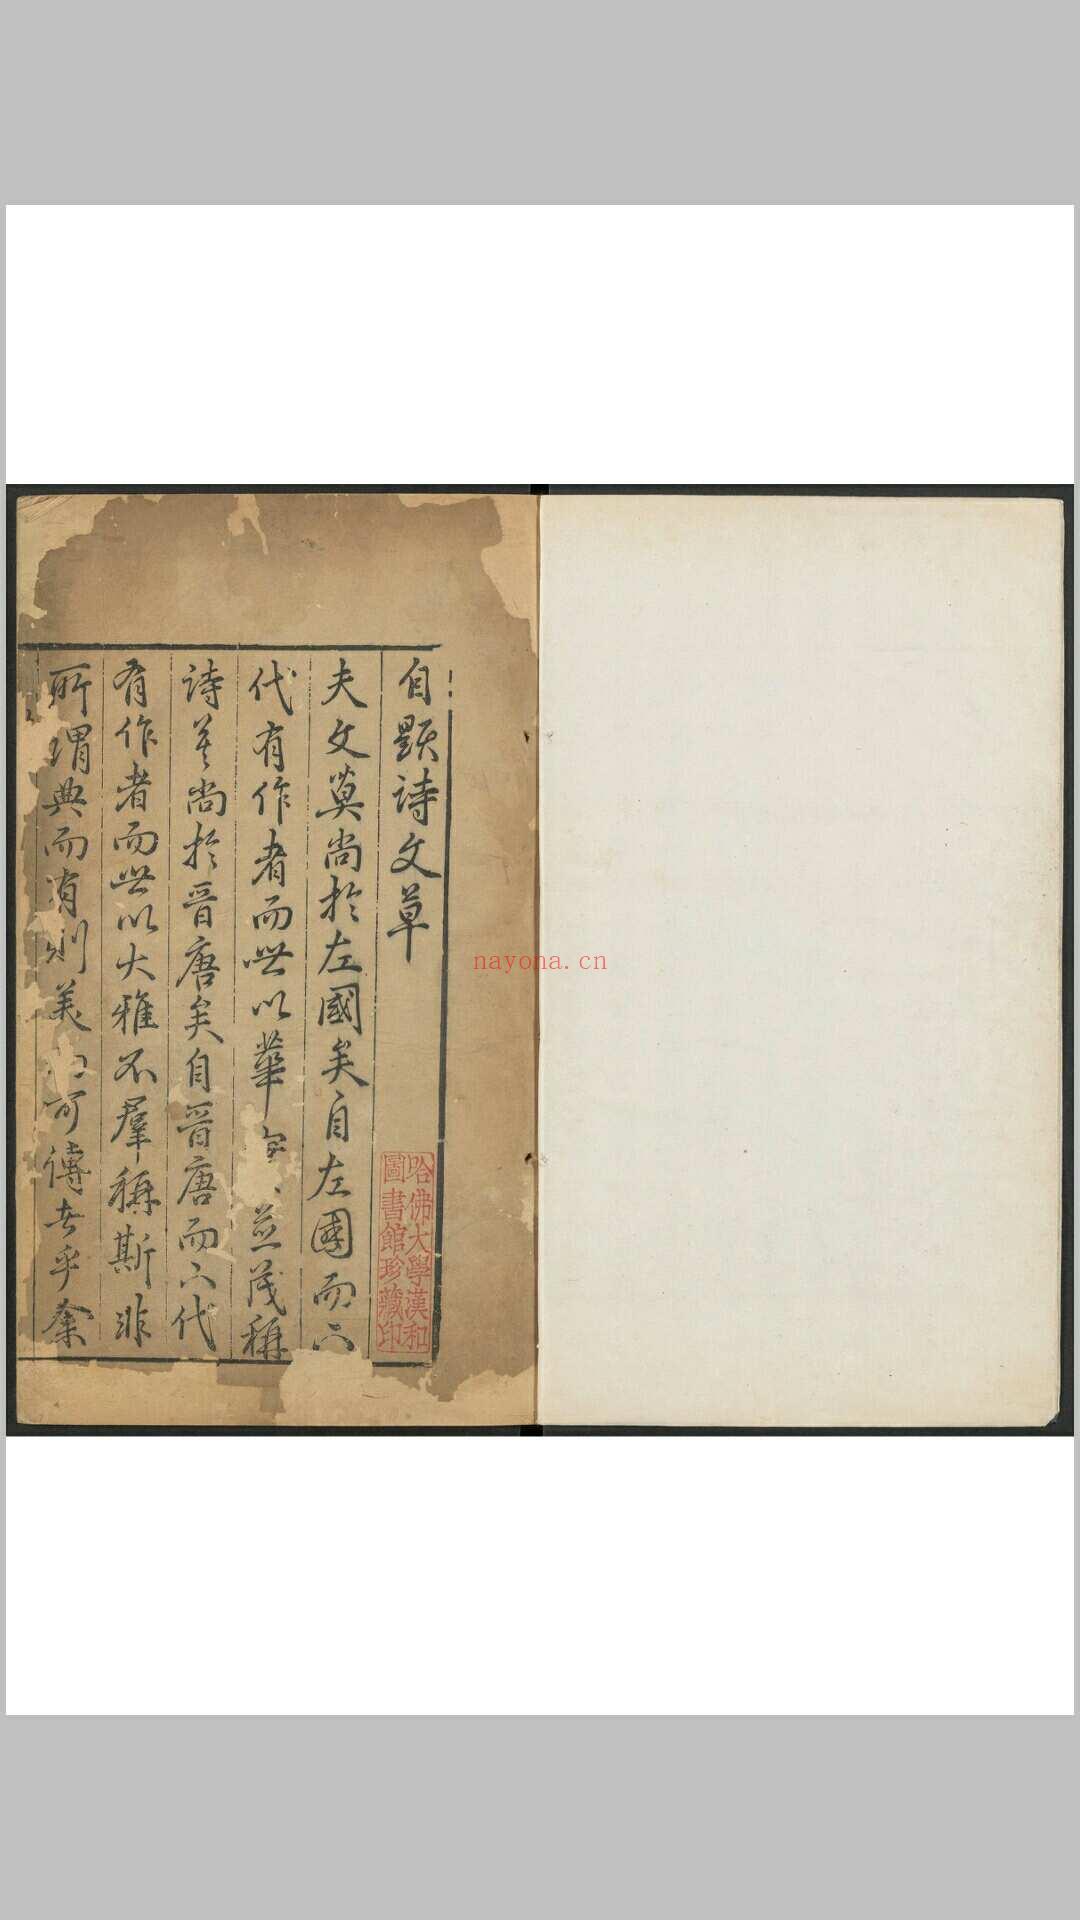 自題詩文草
夫文莫尚於左國矣自左國而下
代有作者而世以華 並茂稱
詩莫尚於晉唐矣自晉唐而下代
有作者而世以大雅不羣稱斯非
所謂典而有則美 可傳者乎余
哈佛大學漢和
圖書館珍藏印
nayona.cn